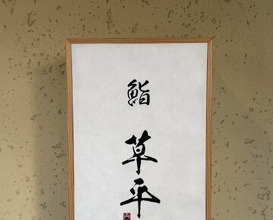 鮨 草平